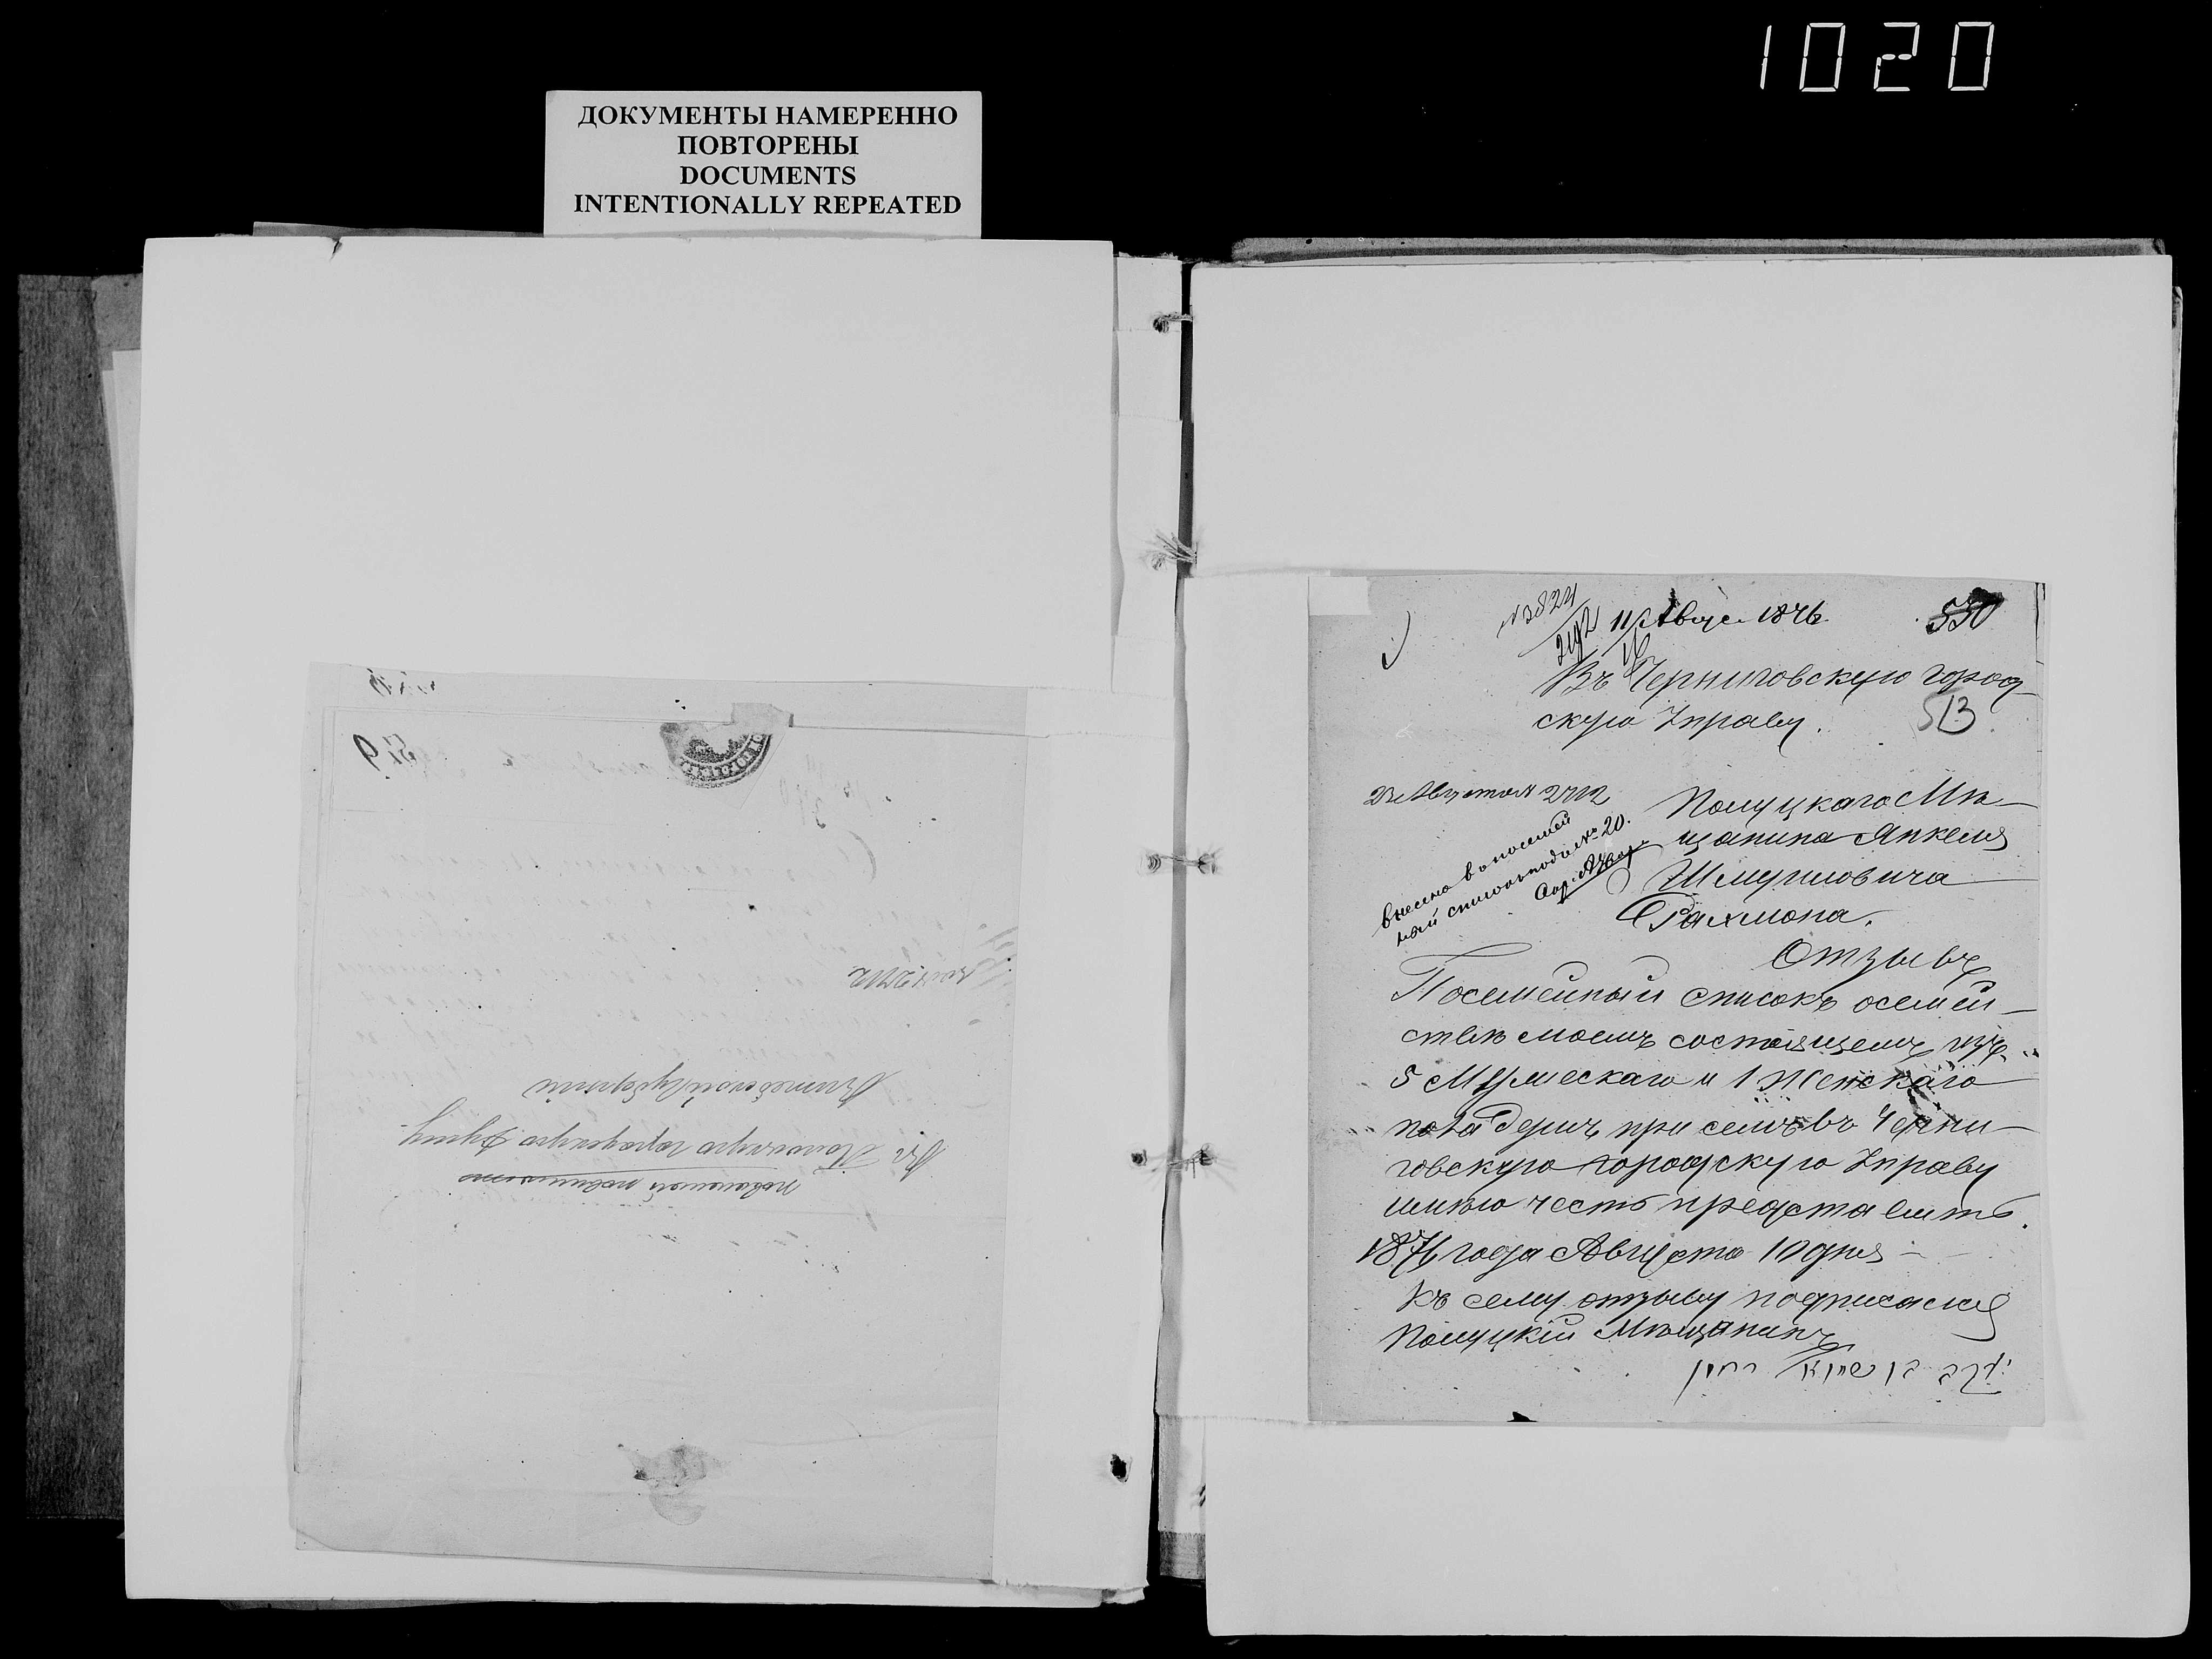 1020
ДОКУМЕНТЫ НАМЕРЕННО
ПОВТОРЕНЫ
DOCUMENTS
INTENTIONALLY REPEATED
549
Витебской Губерніи
Въ Полоцкую городскую Думу
№3824
11 Авгус. 1876
530
Въ Черниговскую город-
скую Управу.
513
Полуцкаго Мѣ-
щанина Янкеля
внесено в посемей
ный список подъ № 20.
Шмуиловича
Рахмона.
Отзывъ
Посемейный списокъ осемей-
ствѣ моемъ состоящемъ изъ
5 Мужескаго и 1 Женскаго
пола душъ при семъ въ Черни-
говскую городскую Управу
имѣю честь представить.
1876 года Августа 10 дня
Къ сему отзыву подписался
Полуцкій Мѣщанинъ